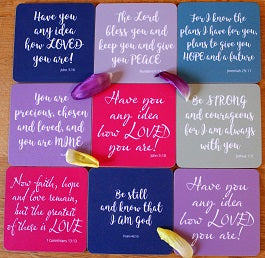 Have you
any idea
how LOVED
you are!
John 3:16
The Lord
bless you and
keep you and give
you PEACE
Numbers
For I know the
plans I have for you,
plans to give you
HOPE and a future
Jeremiah 29:11
You are
precious, chosen
and loved, and
you are MINE
Have you
any idea
how LOVED
you are!
John 3:16
Be STRONG
and courageous
for I am always
with you
Joshua 1:9
Now faith, hope
and love remain,
but the greatest
of these is LOVE
1 Corinthians 13:13
Be still
and know that
I AM GOD
Psalm 46:10
Have you
any idea
how LOVED
you are!